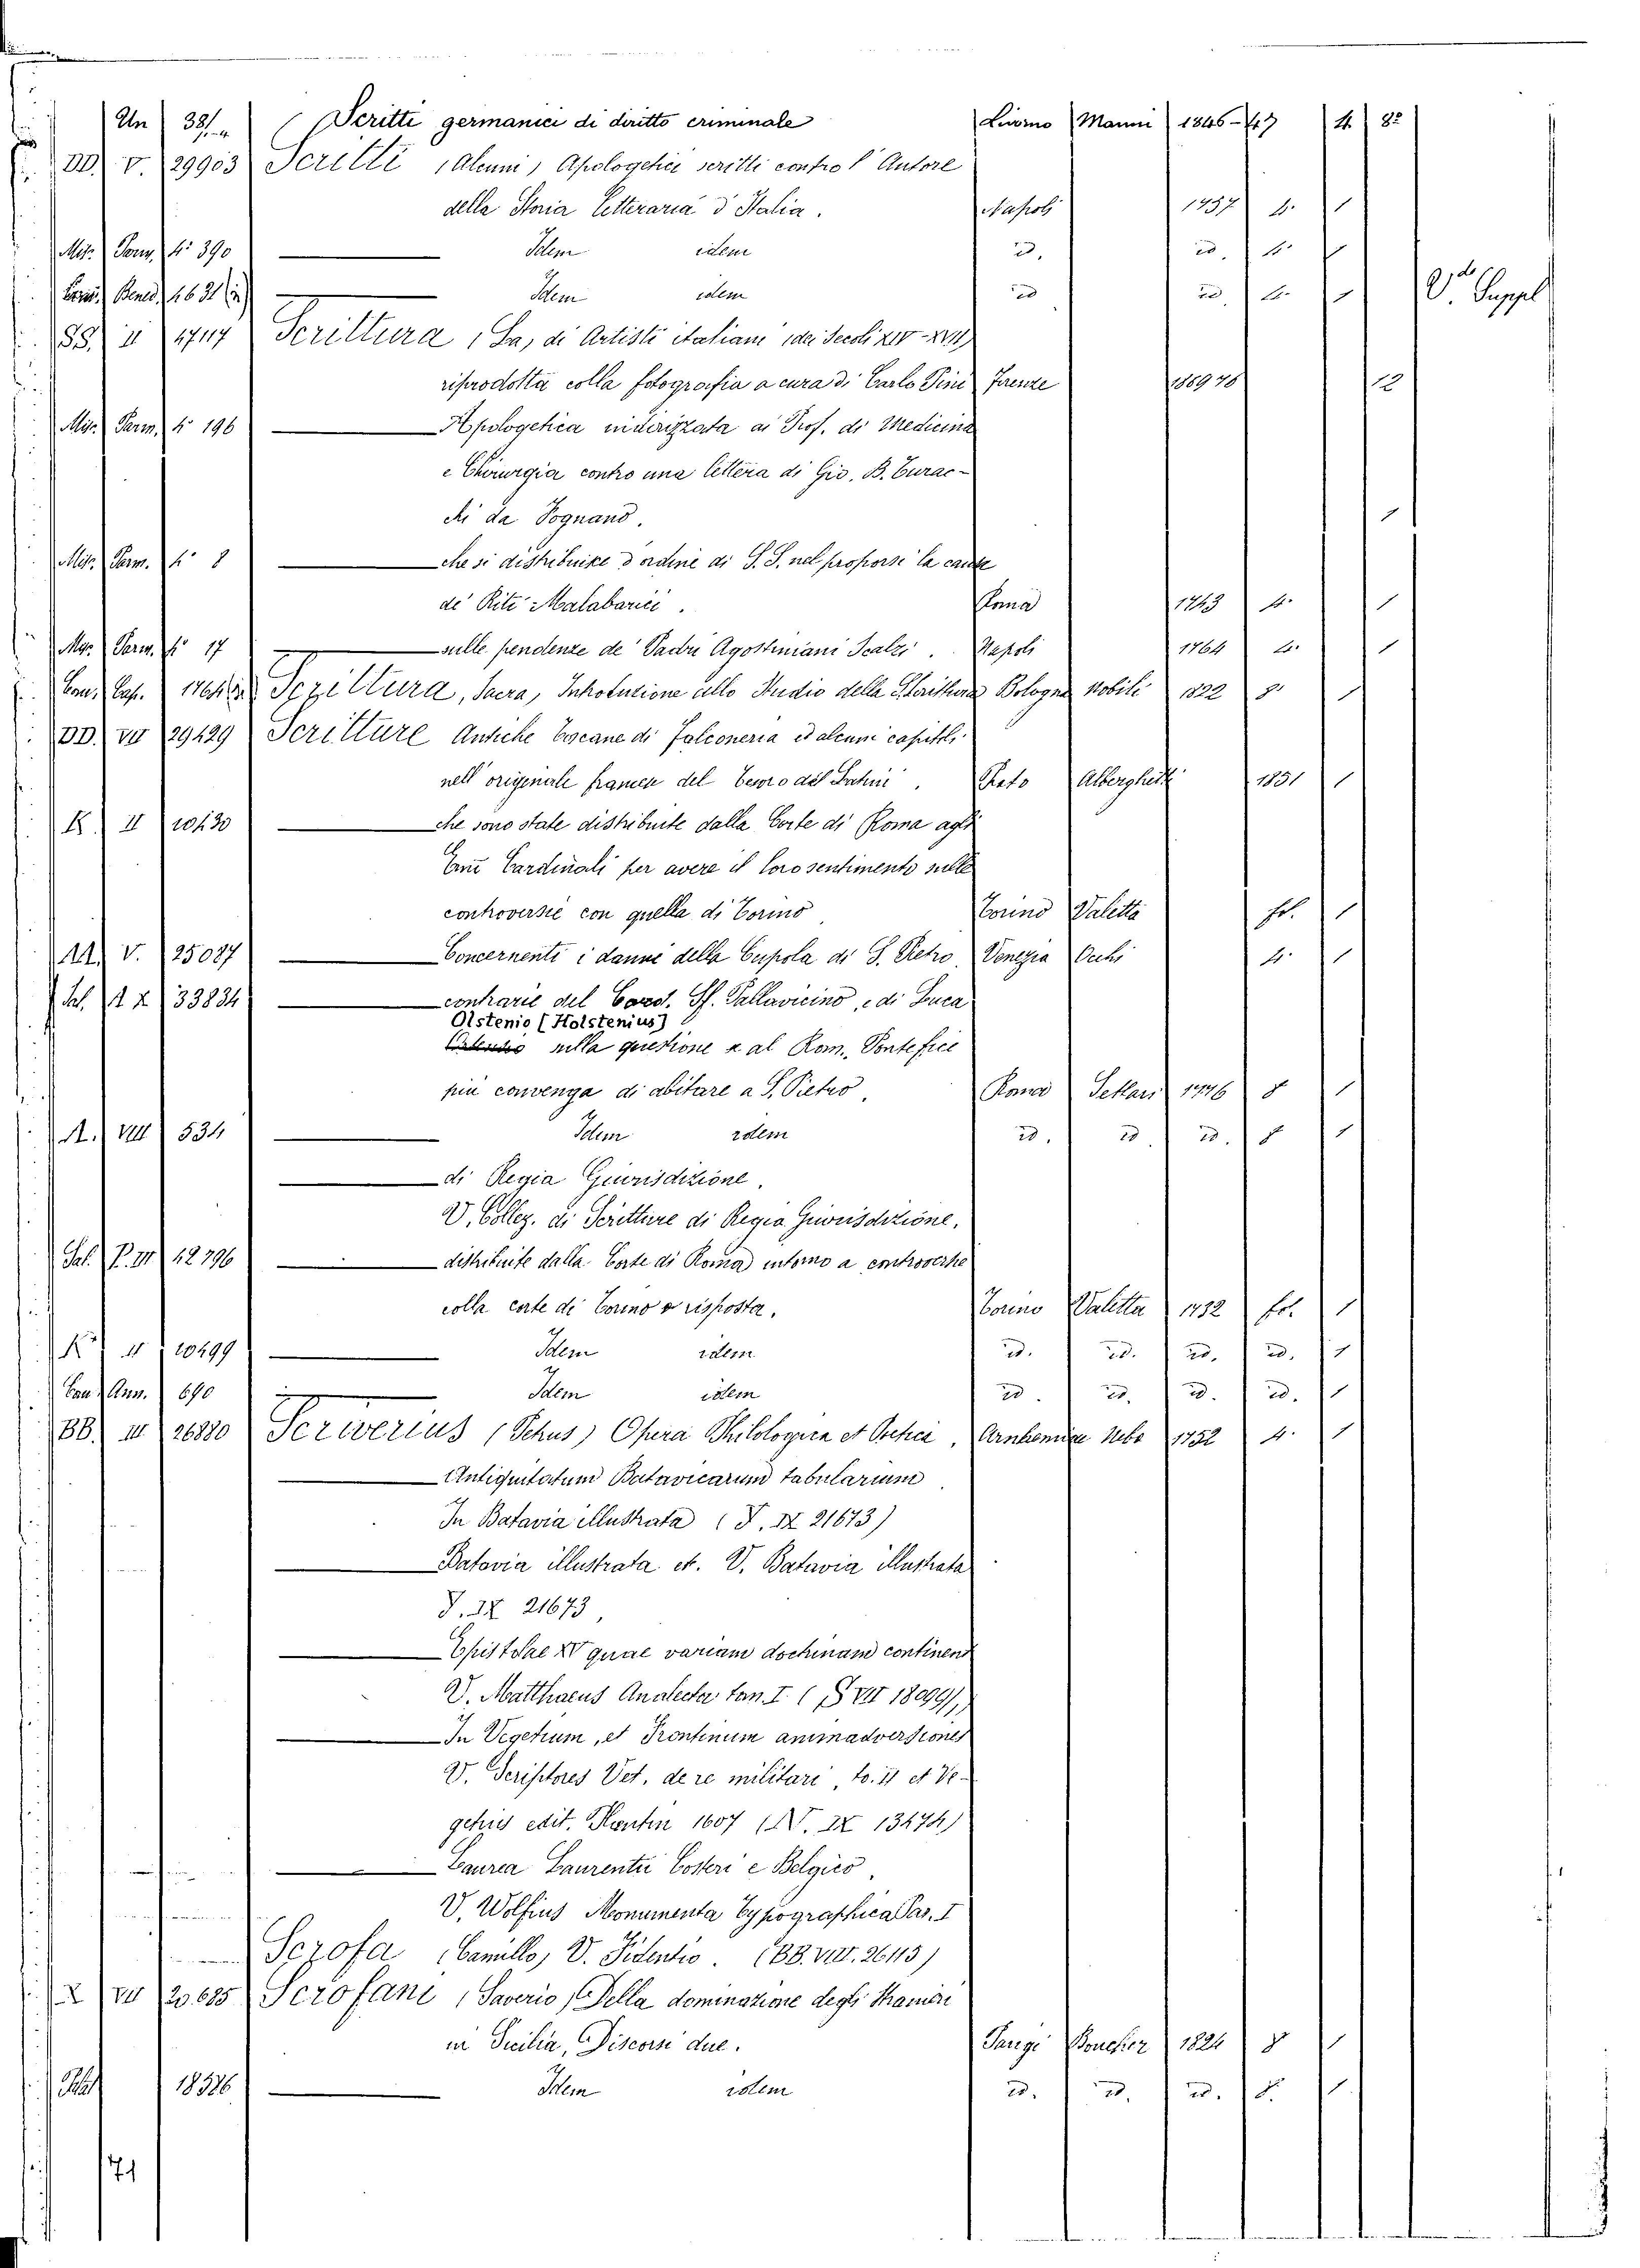 Un 38/4 Scritti germanici di diritto criminale Livorno Manni 1846-47 4 8º
DD. V. 29903 Scritti (Alcuni) Apologetici scritti contro l'Autore
della Storia letteraria d'Italia. Napoli 1757 4. 1
Mis. Parm. 4º 390 Idem idem id. id. 4. 1
Bened. 4631 Idem idem id id. 4. 1 V. Suppl
SS. II 4747 Scrittura (La) di Artisti italiani (dei Secoli XIV-XVII)
riprodotta colla fotografia a cura di Carlo Pini Firenze 12
Mis. Parm. 4º 196 Apologetica indirizzata ai Prof. di Medicina
e Chirurgia contro una lettera di Gio. B. Curac-
chi da Fognano. 1
Mis. Parm. 4º 8 che si distribuisce d'ordine di S. S. nel proporsi la causa
de' Riti Malabarici. Roma 1743 4. 1
Mis. Parm. 4º 17 sulle pendenze de' Padri Agostiniani Scalzi. Napoli 1764 4. 1
Con. Cap. Scrittura, Sacra, Introduzione allo Studio della Scrittura Bologna Nobili 1822 8º 1
DD. VII 29429 Scritture Antiche Toscane di Falconeria ed alcuni capitoli
nell' originale francese del Tesoro del Latini. Prato Alberghetti 1851 1
K. II 10430 che sono state distribuite dalla Corte di Roma agli
Emi Cardinali per avere il loro sentimento sulle
controversie con quella di Torino Torino Valetta fol. 1
AA. V. 25087 Concernenti i danni della Cupola di S. Pietro Venezia Occhi 4. 1
Sal. A X 33834 contrarie del Card. Sf. Pallavicino, e di Luca
Olstenio [Holstenius]
sulla questione se al Rom. Pontefice
più convenga di abitare a S. Pietro. Roma Settari 1776 8 1
A. VIII 534 Idem idem id. id. id. 8 1
di Regia Giurisdizione.
V. Collez. di Scritture di Regia Giurisdizione.
Sal. P. III 12796 distribuite dalla Corte di Roma intorno a controversie
colla corte di Torino e risposta. Torino Valetta 1732 fol. 1
K II 10499 Idem idem id. id. id. id. 1
Can. Ann. 690 Idem idem id. id. id. id. 1
BB. III 26880 Scriverius (Petrus) Opera Philologica et Poetica. Arnhemiae 4. 1
Antiquitatum Batavicarum tabularium
In Batavia illustrata (T. IX 21673)
Batavia illustrata etc. V. Batavia illustrata
T. IX 21673,
Epistolae XV quae variam doctrinam continent
V. Matthaeus Analecta tom. I. (S VII 18099),
In Vegetium, et Frontinum animadversiones
V. Scriptores Vet. de re militari, to. II et Ve-
getius edit. Plantin 1607 (N. IX 13474)
Laurea Laurentii Costeri e Belgico.
V. Wolfius Monumenta Typographica Par. I
Scrofa (Camillo) V. Fidentio. (BB. VIII. 26113)
X VII 20685 Scrofani (Saverio) Della dominazione degli Stranieri
in Sicilia, Discorsi due. Parigi Boucher 1824 8 1
18326 Idem idem id. id. id. 8. 1
71